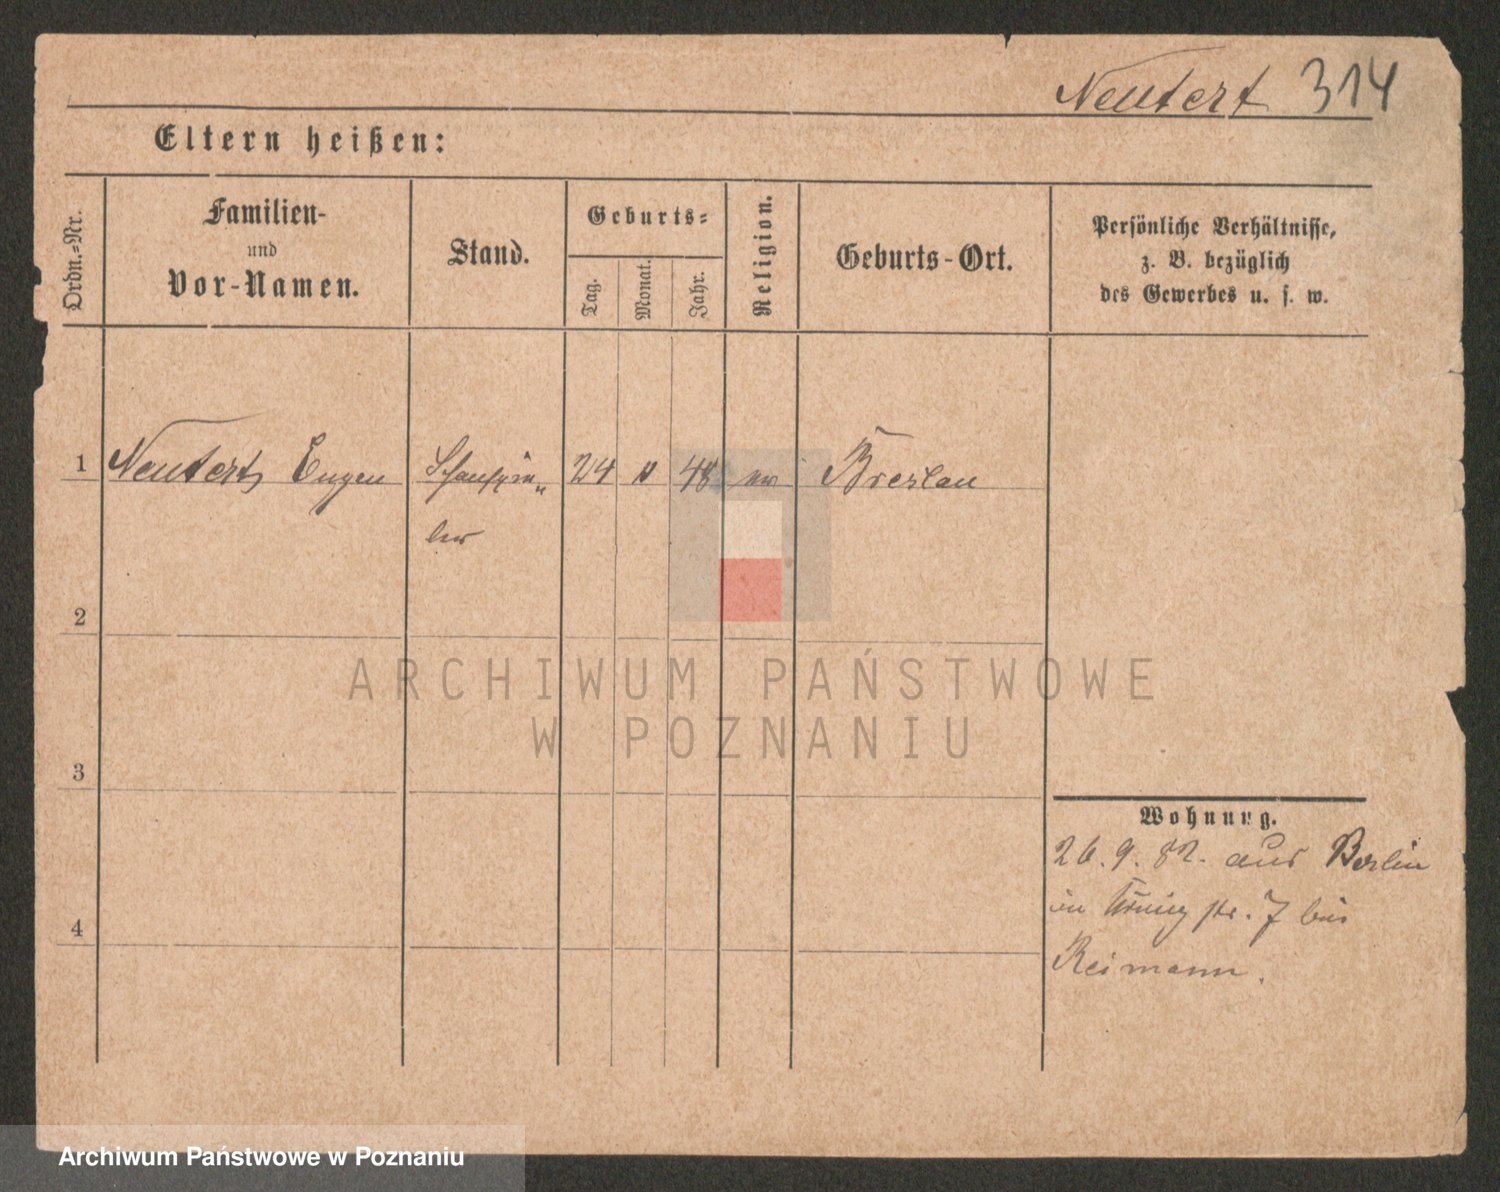 Neutert 314
Eltern heißen:
Ordn.-Nr.
Familien-
und
Vor-Namen.
Stand.
Geburts-
Tag.
Monat.
Jahr.
Religion.
Geburts-Ort.
Persönliche Verhältnisse,
z. B. bezüglich
des Gewerbes u. s. w.
1 Neutert, Eugen Schauspie- 24 48 ev Breslau
ler
2
3
4
Wohnung.
26.9.82. aus Berlin
in König str. 7 bei
Reimann.
ARCHIWUM PAŃSTWOWE
W POZNANIU
Archiwum Państwowe w Poznaniu